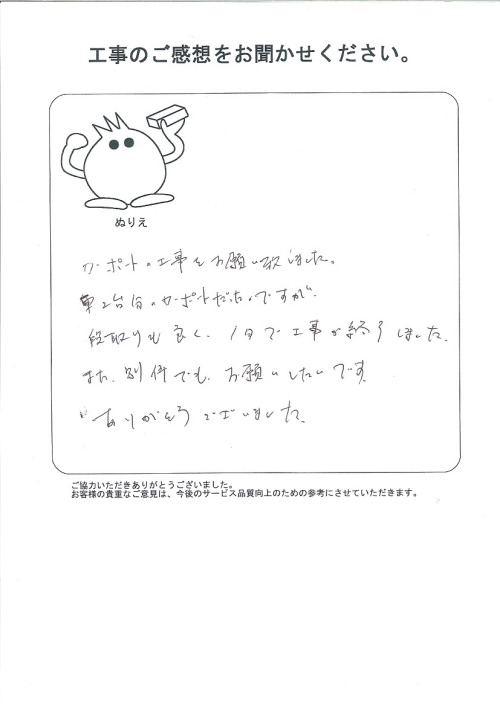 工事のご感想をお聞かせください。
ぬりえ
カーポートの工事をお願い致しました。
車2台分のカーポートだったのですが、
段取りも良く、1日で工事が終了しました。
また、別件でも、お願いしたいです。
ありがとうございました。
ご協力いただきありがとうございました。
お客様の貴重なご意見は、今後のサービス品質向上のための参考にさせていただきます。